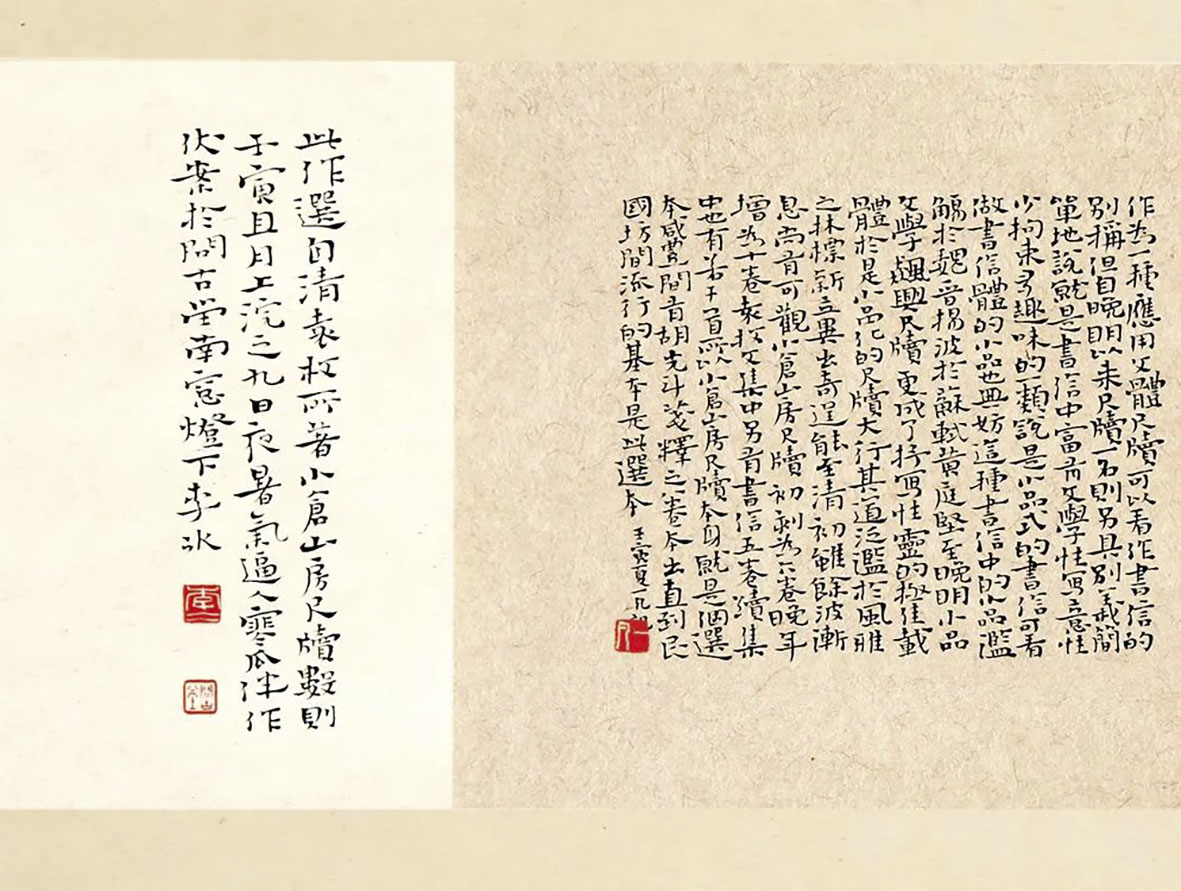 作為一種應用文體尺牘可以看作書信的
別稱但自晚明以来尺牘一名則另具別義簡
單地說就是書信中富有文學性寫意性
少拘束有趣味的一類說是小品式的書信可看
做書信體的小品也無妨這種書信中的小品濫
觴於魏晋揚波於蘇軾黃庭堅至晚明小品
文學飆興尺牘更成了抒寫性靈的極佳載
體於是小品化的尺牘大行其道泛濫於風雅
之林標新立異出奇逞能至清初雖餘波漸
息尚有可觀小倉山房尺牘初刻為六卷晚年
增為十卷袁枚文集中另有書信五卷續集
中也有若干首所以小倉山房尺牘本身就是個選
本咸豐間有胡光斗箋釋之卷本出直到民
國坊間流行的基本是此選本 壬寅夏一凡
此作選自清袁枚所著小倉山房尺牘數則
壬寅且月上浣之九日夜暑氣逼人寒瓜伴作
伏案於問古堂南窓燈下李冰